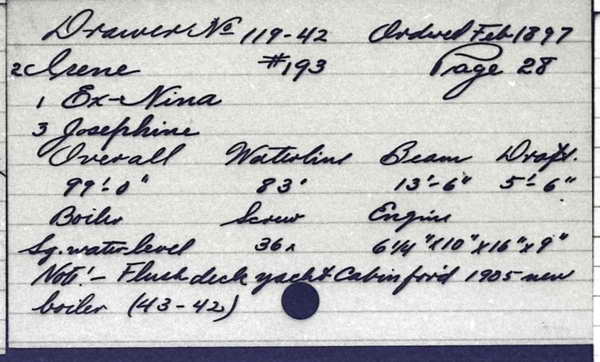 Drawer No 119-42 Ordered Feb 1897
2 Irene #193 Page 28
1 Ex-Nina
3 Josephine
Overall Waterline Beam Draft.
99'-0" 83' 13'-6" 5'-6"
Boiler Screw Engine
Sq. water level 36" 6 1/4" x 10" x 16" x 9"
Note! - Flush deck yacht Cabin for'd 1905 new
boiler (43-42)